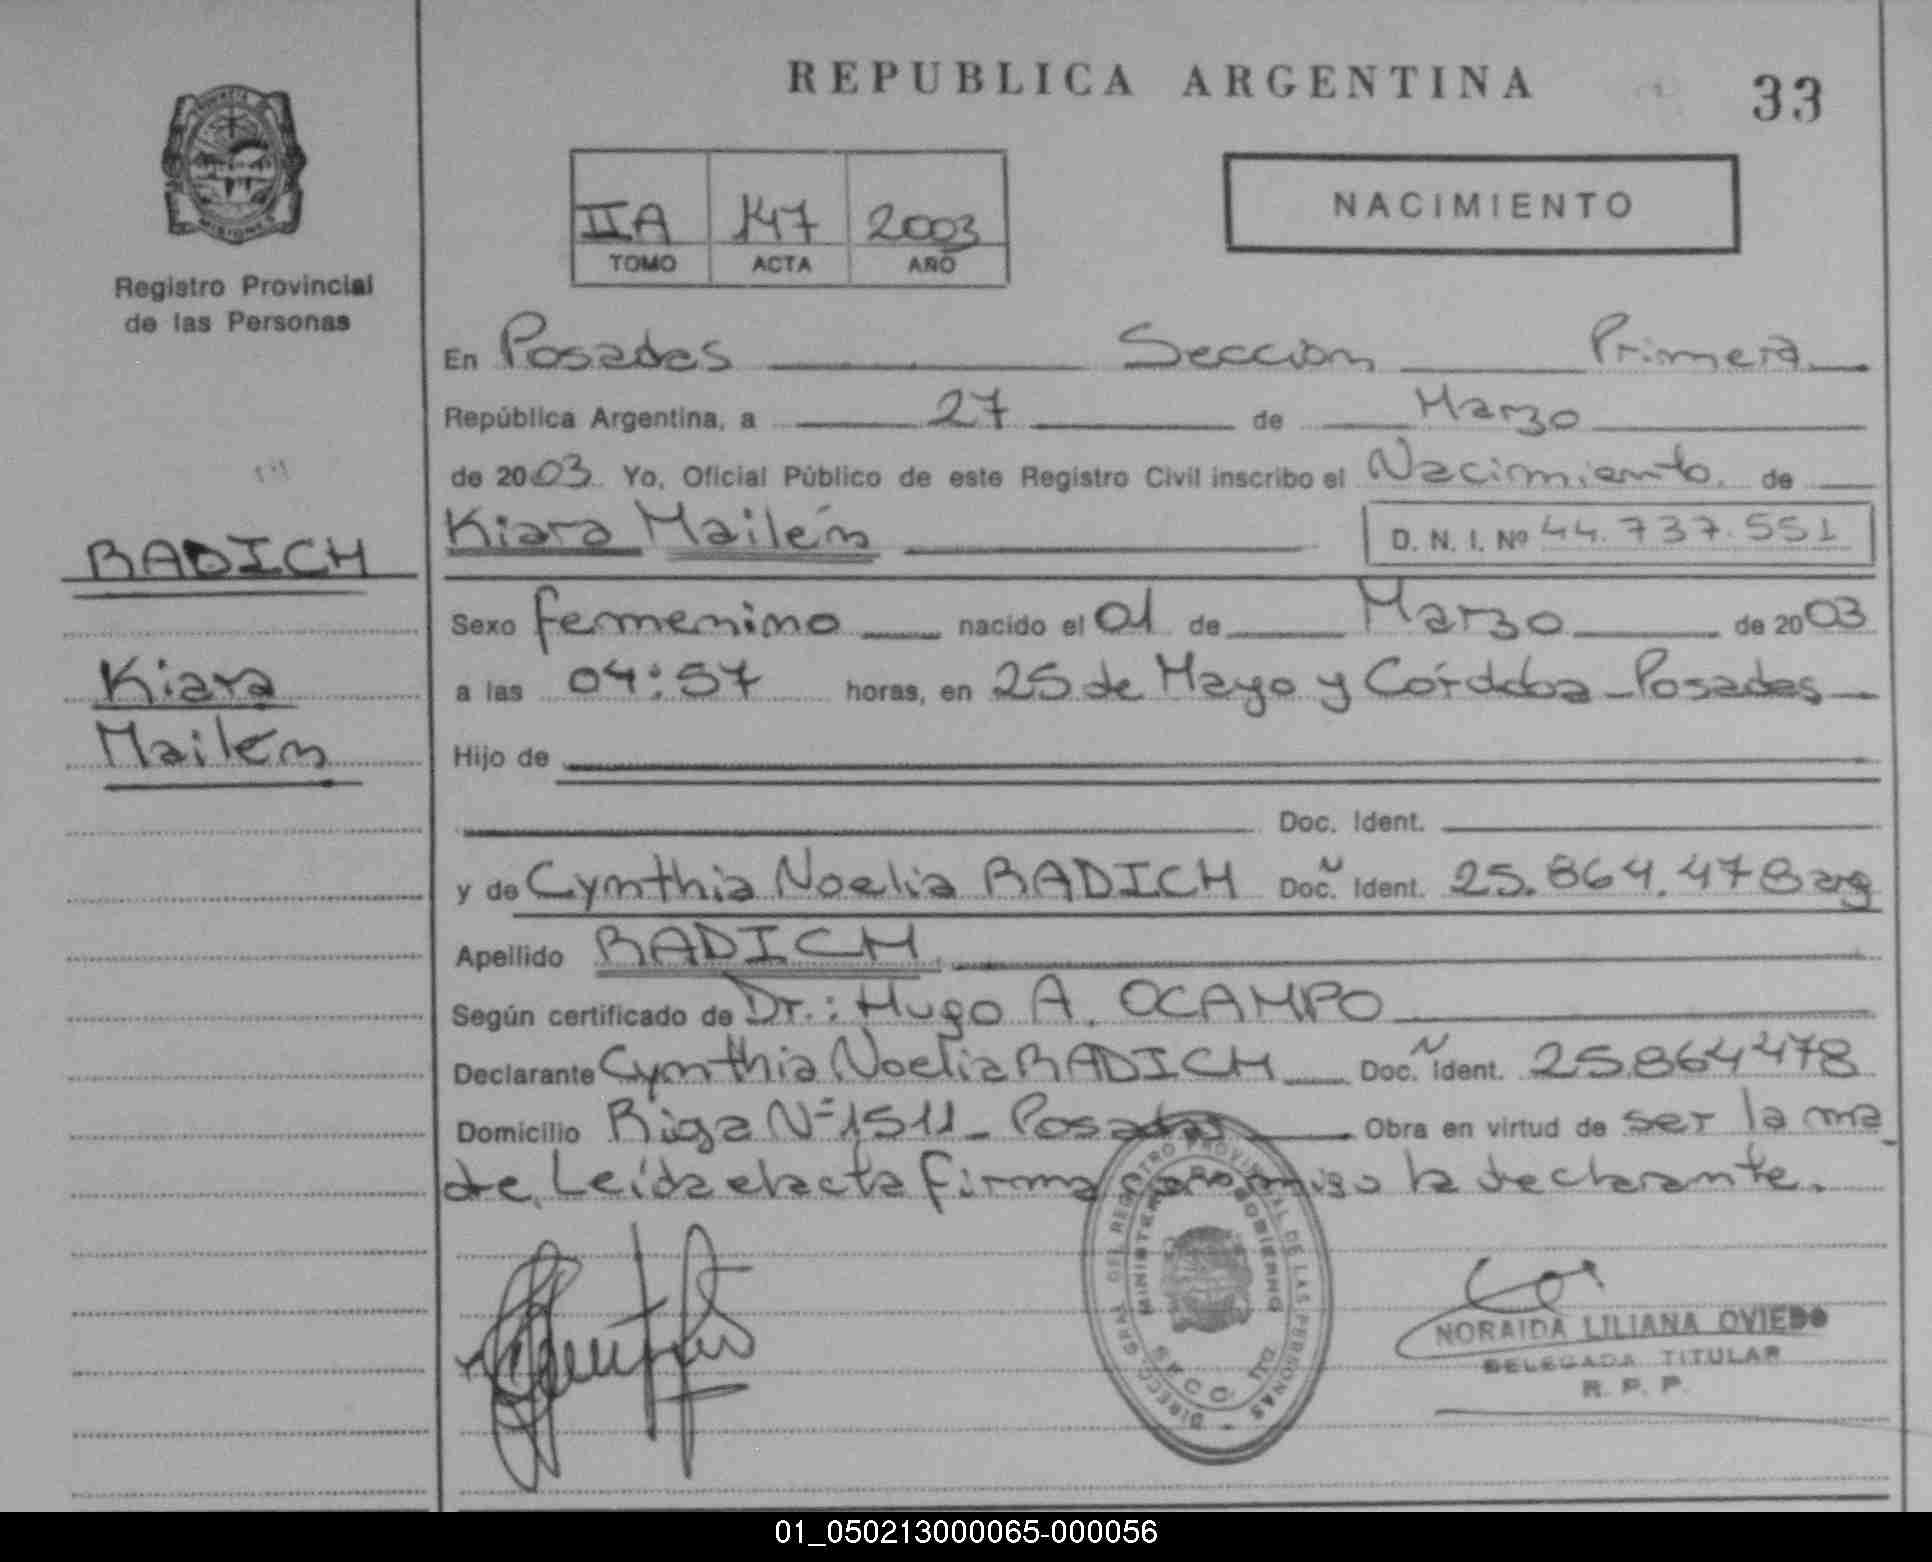 REPUBLICA ARGENTINA
33
IIA 147 2003
TOMO ACTA AÑO
NACIMIENTO
PROVINCIA
MISIONES
Registro Provincial
de las Personas
RADICH
Kiara
Mailén
En Posadas Sección Primera
República Argentina, a 27 de Marzo
de 2003. Yo, Oficial Público de este Registro Civil inscribo el Nacimiento. de
Kiara Mailén D. N. I. Nº 44.737.551
Sexo femenino nacido el 01 de Marzo de 2003
a las 04:57 horas, en 25 de Mayo y Córdoba - Posadas
Hijo de
Doc. Ident.
y de Cynthia Noelia RADICH Doc. Ident. 25.864.478 arg
N
Apellido RADICH.
Según certificado de Dr.: Hugo A. OCAMPO
Declarante Cynthia Noelia RADICH Doc. Ident. 25.864478
N
Domicilio Riga Nº 1511 - Posadas Obra en virtud de ser la ma
de. Leída el acta firma la declarante.
DIRECC. GRAL. DEL REGISTRO PROVINCIAL DE LAS PERSONAS
MINISTERIO DE GOBIERNO
NORAIDA LILIANA OVIEDO
DELEGADA TITULAR
R. P. P.
01_050213000065-000056